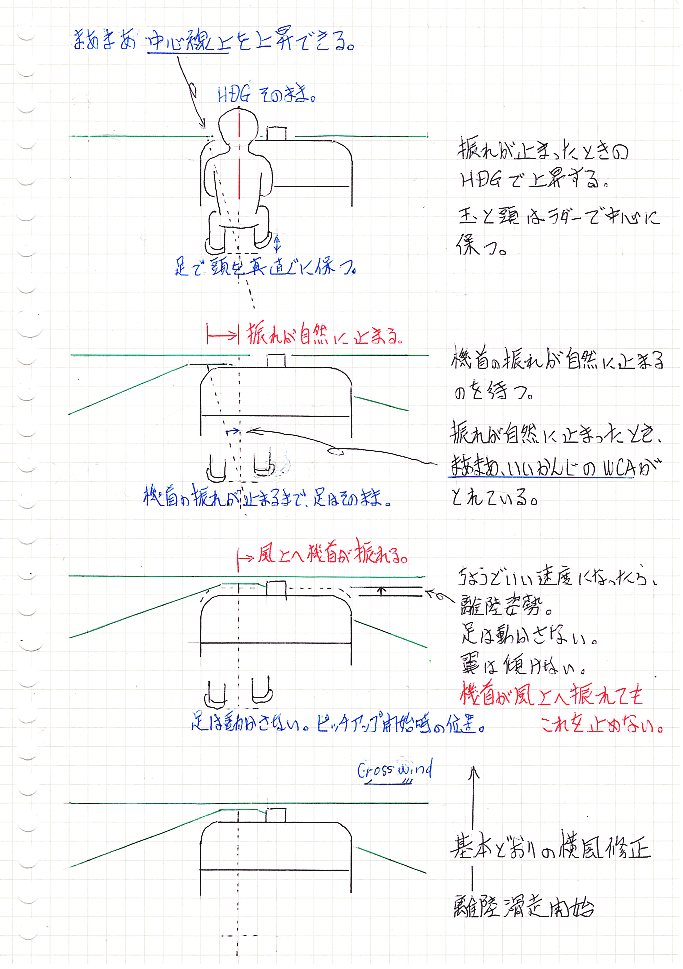 まあまあ 中心線上を上昇できる。
HDG そのまま。
振れが止まったときの
HDGで上昇する。
玉と頭はラダーで中心に
保つ。
足で頭を真直ぐに保つ。
振れが自然に止まる。
機首の振れが自然に止まる
のを待つ。
振れが自然に止まったとき、
まあまあ、いいかんじのWCAが
とれている。
機首の振れが止まるまで、足はそのまま。
風上へ機首が振れる。
ちょうどいい速度になったら、
離陸姿勢。
足は動かさない。
翼は傾けない。
機首が風上へ振れても
これを止めない。
足は動かさない。ピッチアップ開始時の位置。
Cross wind
基本どおりの横風修正
離陸滑走開始